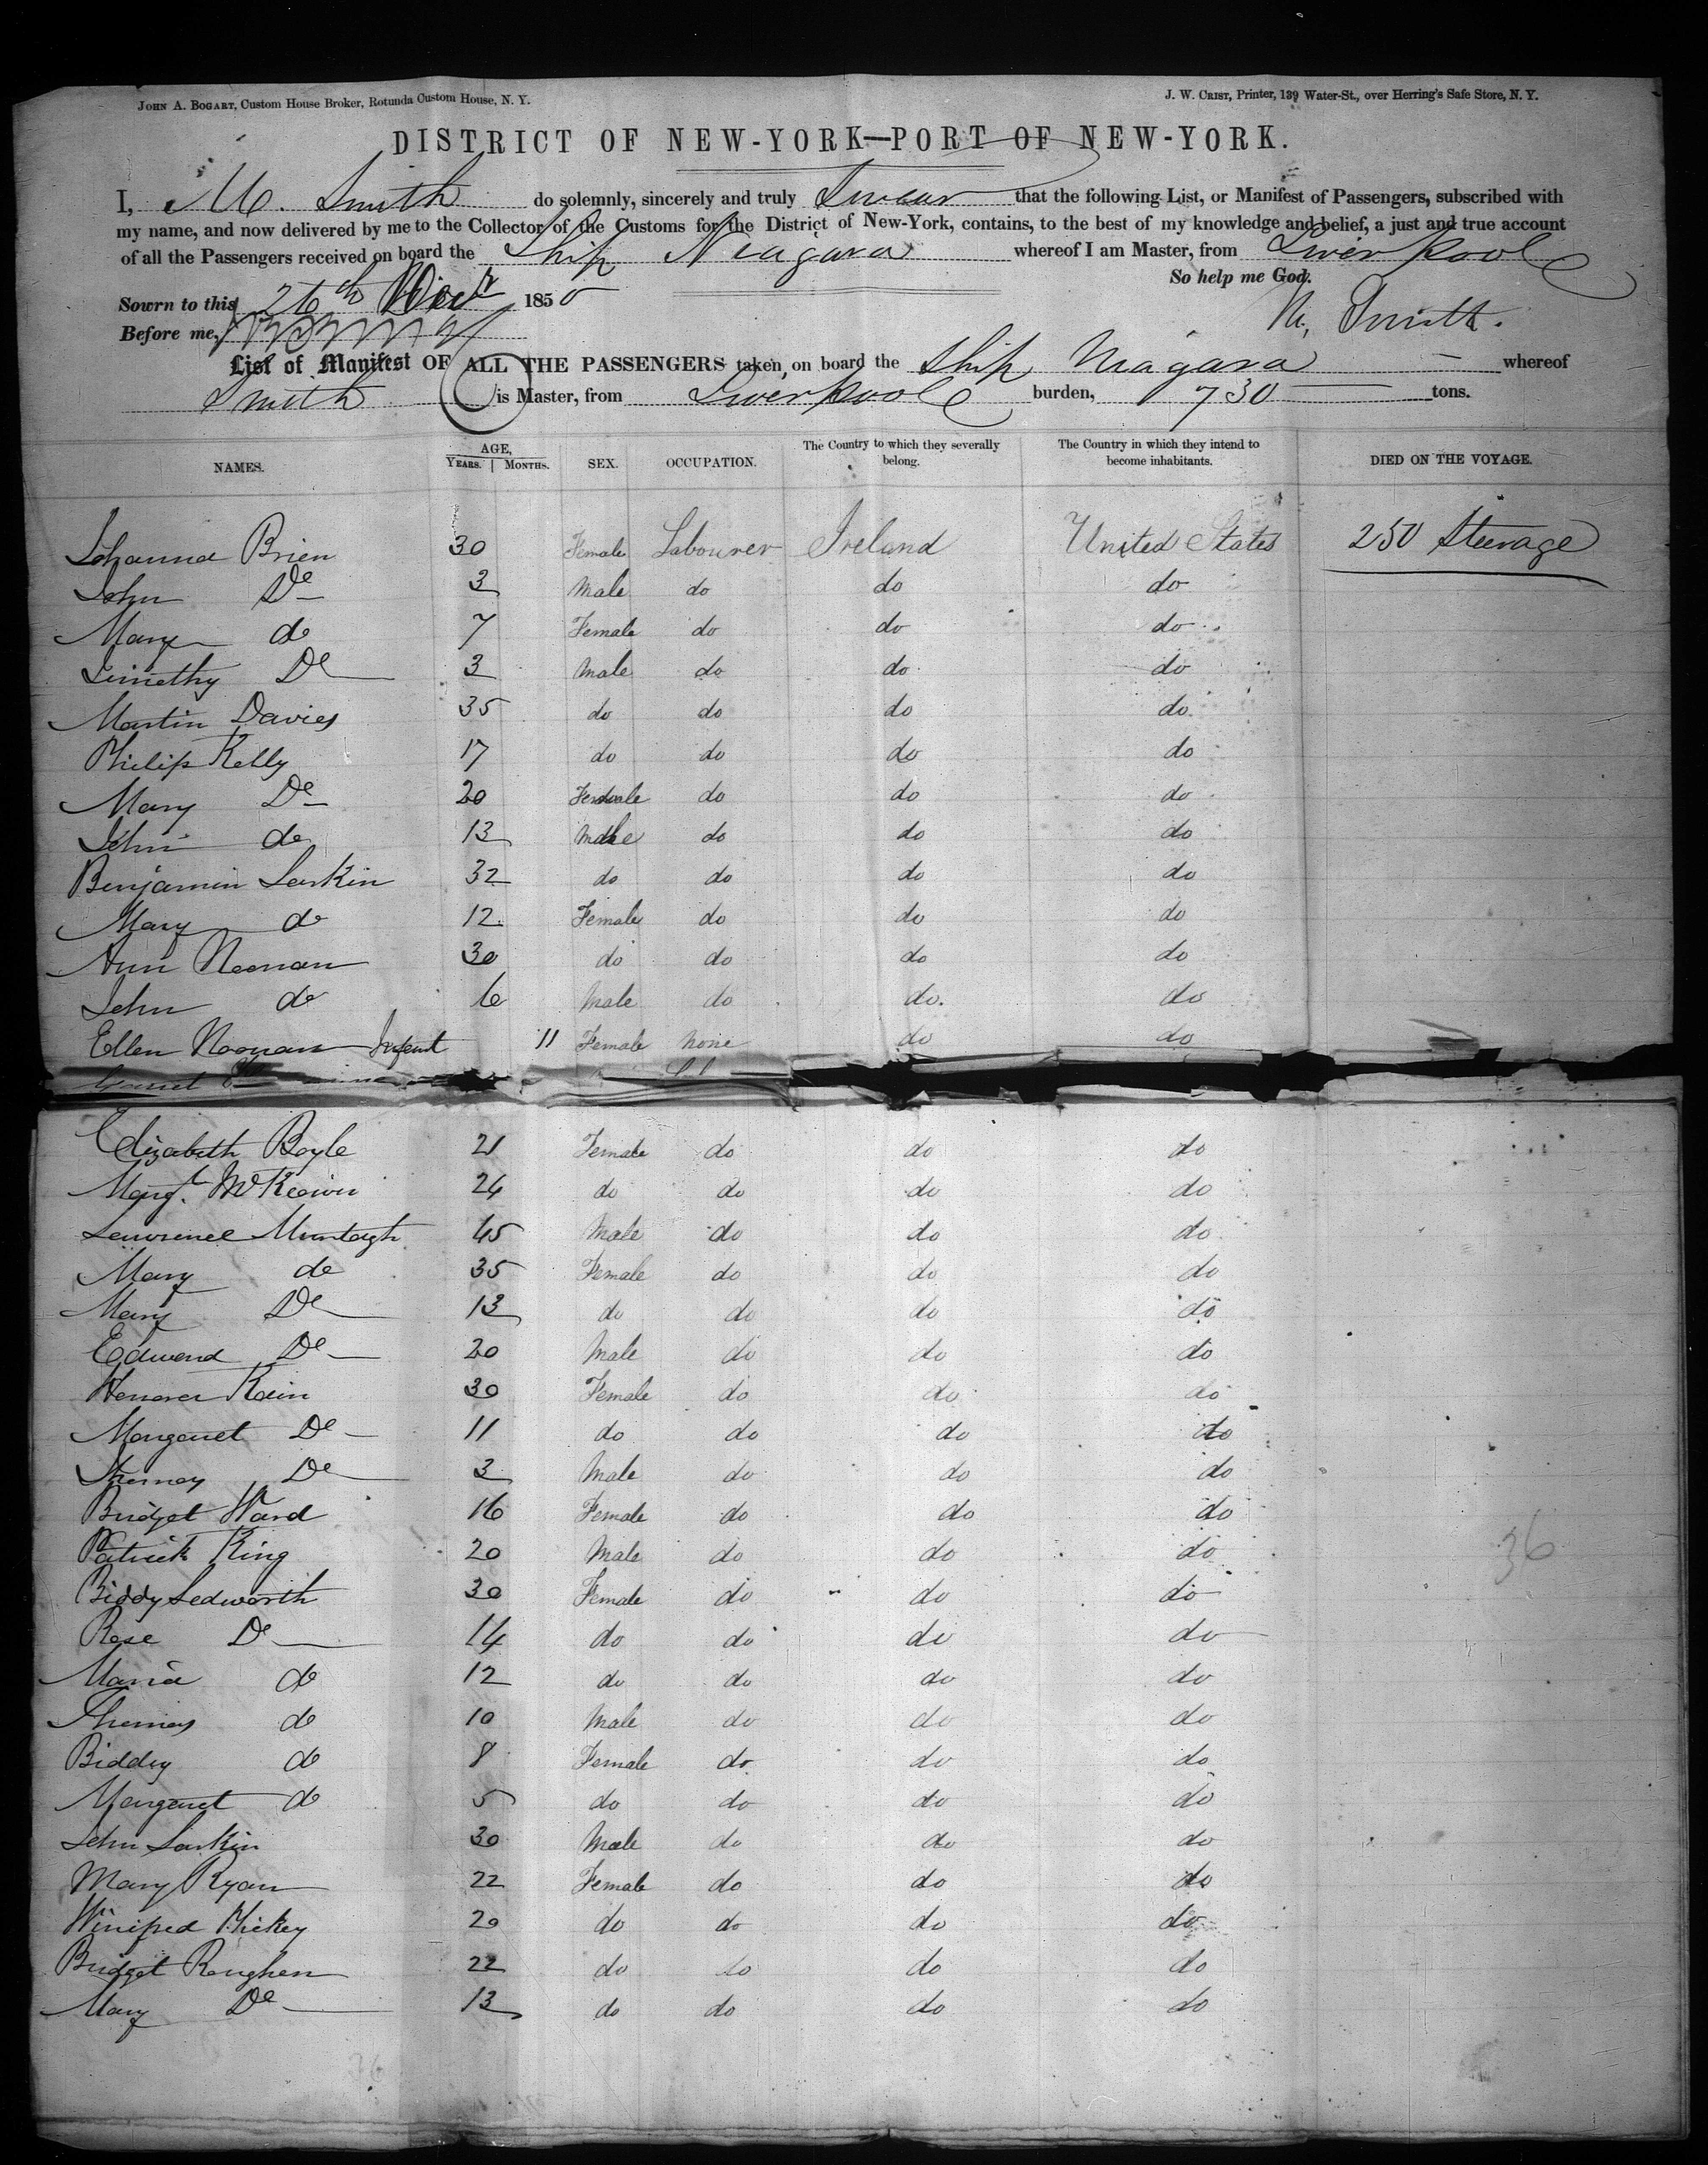 JOHN A. BOGART, Custom House Broker, Rotunda Custom House, N. Y.
J. W. CRIST, Printer, 139 Water-St., over Herring's Safe Store, N. Y.
DISTRICT OF NEW-YORK—PORT OF NEW-YORK.
I, M. Smith do solemnly, sincerely and truly Swear that the following List, or Manifest of Passengers, subscribed with
my name, and now delivered by me to the Collector of the Customs for the District of New-York, contains, to the best of my knowledge and belief, a just and true account
of all the Passengers received on board the Ship Niagara whereof I am Master, from Liverpool
So help me God.
Sowrn to this 26th 1850
M, Smith.
Before me,
List of Manifest OF ALL THE PASSENGERS taken on board the Ship Niagara whereof
Smith is Master, from Liverpool burden, 730 tons.
NAMES. AGE, YEARS. MONTHS. SEX. OCCUPATION. The Country to which they severally belong. The Country in which they intend to become inhabitants. DIED ON THE VOYAGE.
Johanna Brien 30 Female Labourer Ireland United States 250 Steerage
John Do 3 Male do do do
Mary do 7 Female do do do
Timothy Do 3 Male do do do
Martin Davies 35 do do do do
Philip Kelly 17 do do do do
Mary Do 20 Female do do do
John do 13 Male do do do
Benjamin Larkin 32 do do do do
Mary do 12 Female do do do
Ann Noonan 30 do do do do
John do 6 Male do do do
Ellen Noonan Infant 11 Female None do do
Elizabeth Boyle 21 Female do do do
Margt. McKeown 24 do do do do
Lawrence Murtagh 45 Male do do do
Mary do 35 Female do do do
Mary Do 13 do do do do
Edward Do 20 Male do do do
Honora Kain 30 Female do do do
Margaret Do 11 do do do do
Thomas Do 3 Male do do do
Bridget Ward 16 Female do do do
Patrick King 20 Male do do do
36
Biddy Ledworth 30 Female do do do
Rose Do 14 do do do do
Maria do 12 do do do do
Thomas do 10 Male do do do
Biddy do 8 Female do do do
Margaret do 5 do do do do
John Larkin 30 Male do do do
Mary Ryan 22 Female do do do
Winifred Hickey 20 do do do do
Bridget Roughen 22 do do do do
Mary Do 13 do do do do